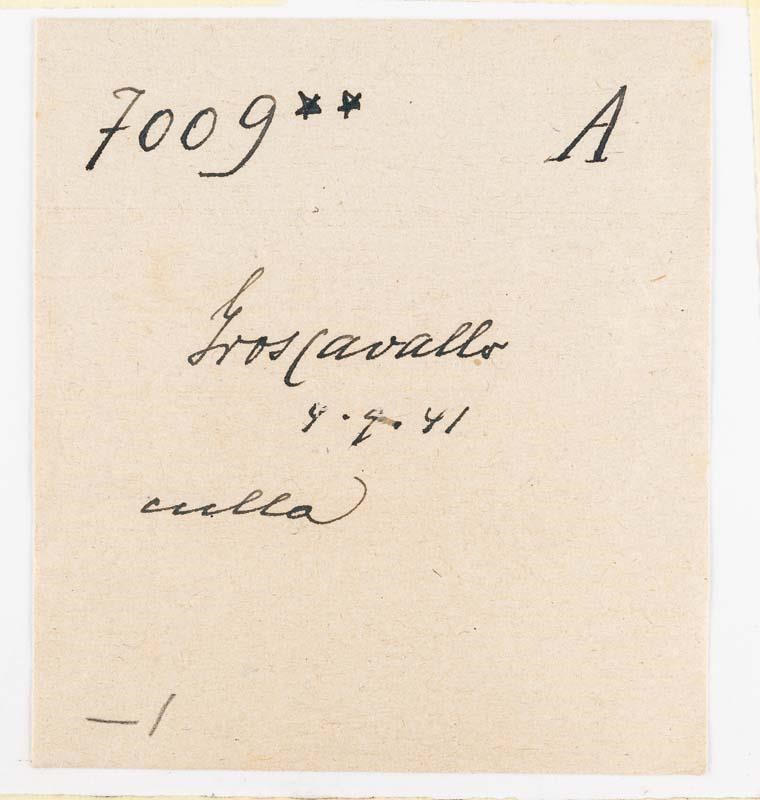 7009** A
Groscavallo
4.9.41
culla
— 1